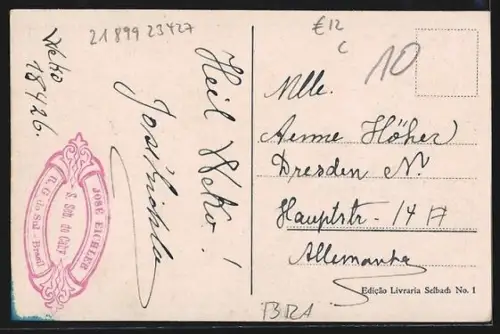 21899 23427
€12
C
10
Weko
18426.
Heil Weko!
José Eichler
JOSÉ EICHLER
S. Seb. do CAHY
R. G. do Sul - Brasil
Mlle.
Aenne Höher
Dresden N.
Hauptstr. 14 A
Allemanha
Edição Livraria Selbach No. 1